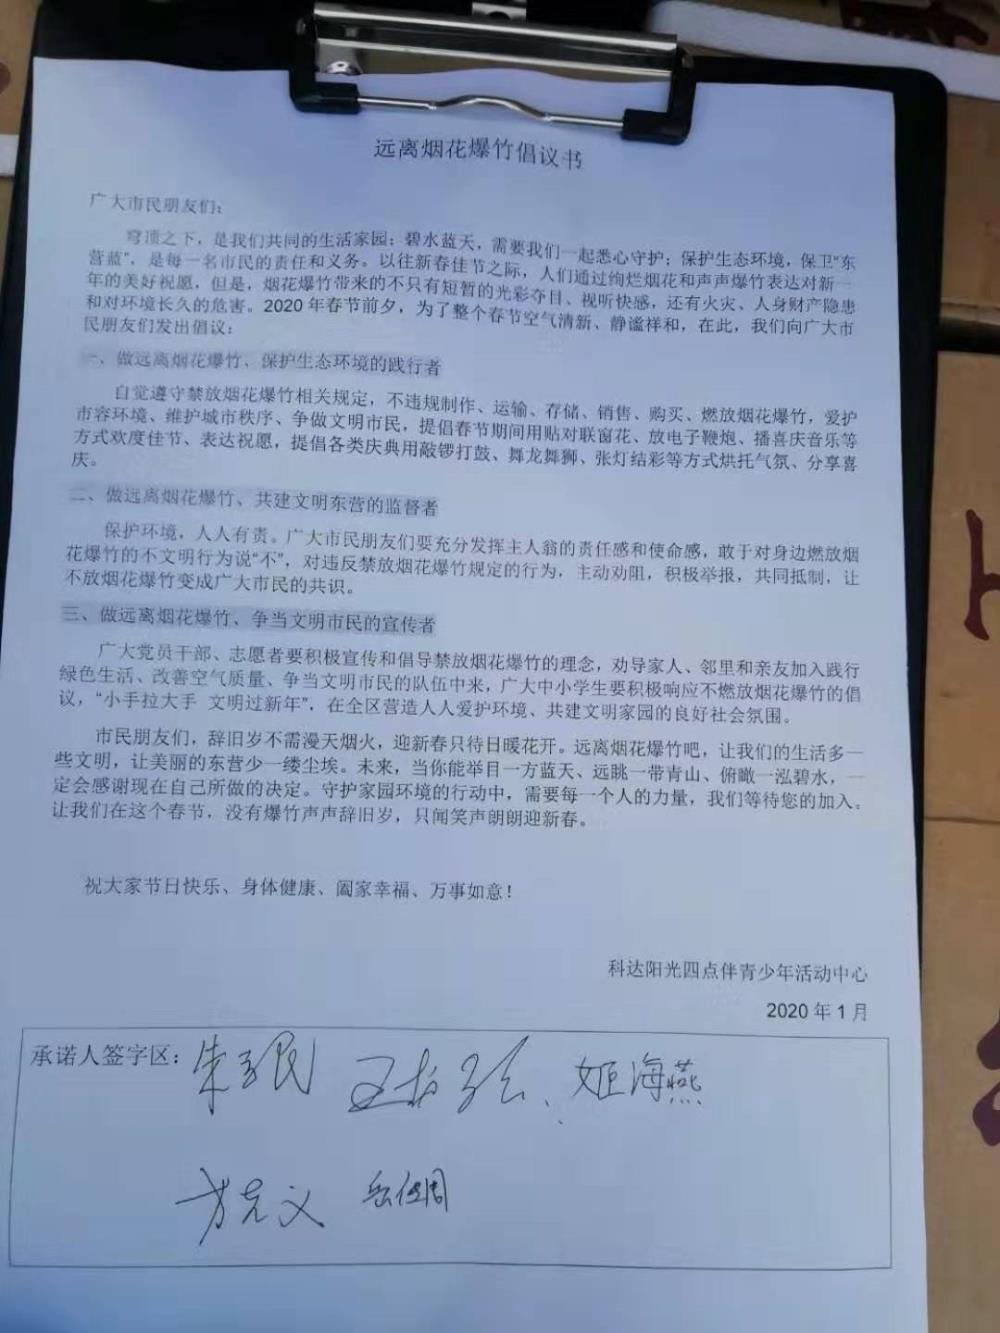 远离烟花爆竹倡议书
广大市民朋友们：
穹顶之下，是我们共同的生活家园；碧水蓝天，需要我们一起悉心守护；保护生态环境，保卫“东
营蓝”，是每一名市民的责任和义务。以往新春佳节之际，人们通过绚烂烟花和声声爆竹表达对新一
年的美好祝愿，但是，烟花爆竹带来的不只有短暂的光彩夺目、视听快感，还有火灾、人身财产隐患
和对环境长久的危害。2020 年春节前夕，为了整个春节空气清新、静谧祥和，在此，我们向广大市
民朋友们发出倡议：
一、做远离烟花爆竹、保护生态环境的践行者
自觉遵守禁放烟花爆竹相关规定，不违规制作、运输、存储、销售、购买、燃放烟花爆竹，爱护
市容环境、维护城市秩序、争做文明市民，提倡春节期间用贴对联窗花、放电子鞭炮、播喜庆音乐等
方式欢度佳节、表达祝愿，提倡各类庆典用敲锣打鼓、舞龙舞狮、张灯结彩等方式烘托气氛、分享喜
庆。
二、做远离烟花爆竹、共建文明东营的监督者
保护环境，人人有责。广大市民朋友们要充分发挥主人翁的责任感和使命感，敢于对身边燃放烟
花爆竹的不文明行为说“不”，对违反禁放烟花爆竹规定的行为，主动劝阻，积极举报，共同抵制，让
不放烟花爆竹变成广大市民的共识。
三、做远离烟花爆竹、争当文明市民的宣传者
广大党员干部、志愿者要积极宣传和倡导禁放烟花爆竹的理念，劝导家人、邻里和亲友加入践行
绿色生活、改善空气质量、争当文明市民的队伍中来，广大中小学生要积极响应不燃放烟花爆竹的倡
议，“小手拉大手 文明过新年”，在全区营造人人爱护环境、共建文明家园的良好社会氛围。
市民朋友们，辞旧岁不需漫天烟火，迎新春只待日暖花开。远离烟花爆竹吧，让我们的生活多一
些文明，让美丽的东营少一缕尘埃。未来，当你能举目一方蓝天、远眺一带青山、俯瞰一泓碧水，一
定会感谢现在自己所做的决定。守护家园环境的行动中，需要每一个人的力量，我们等待您的加入。
让我们在这个春节，没有爆竹声声辞旧岁，只闻笑声朗朗迎新春。
祝大家节日快乐、身体健康、阖家幸福、万事如意！
科达阳光四点伴青少年活动中心
2020 年 1 月
承诺人签字区： 姬海燕
方克义